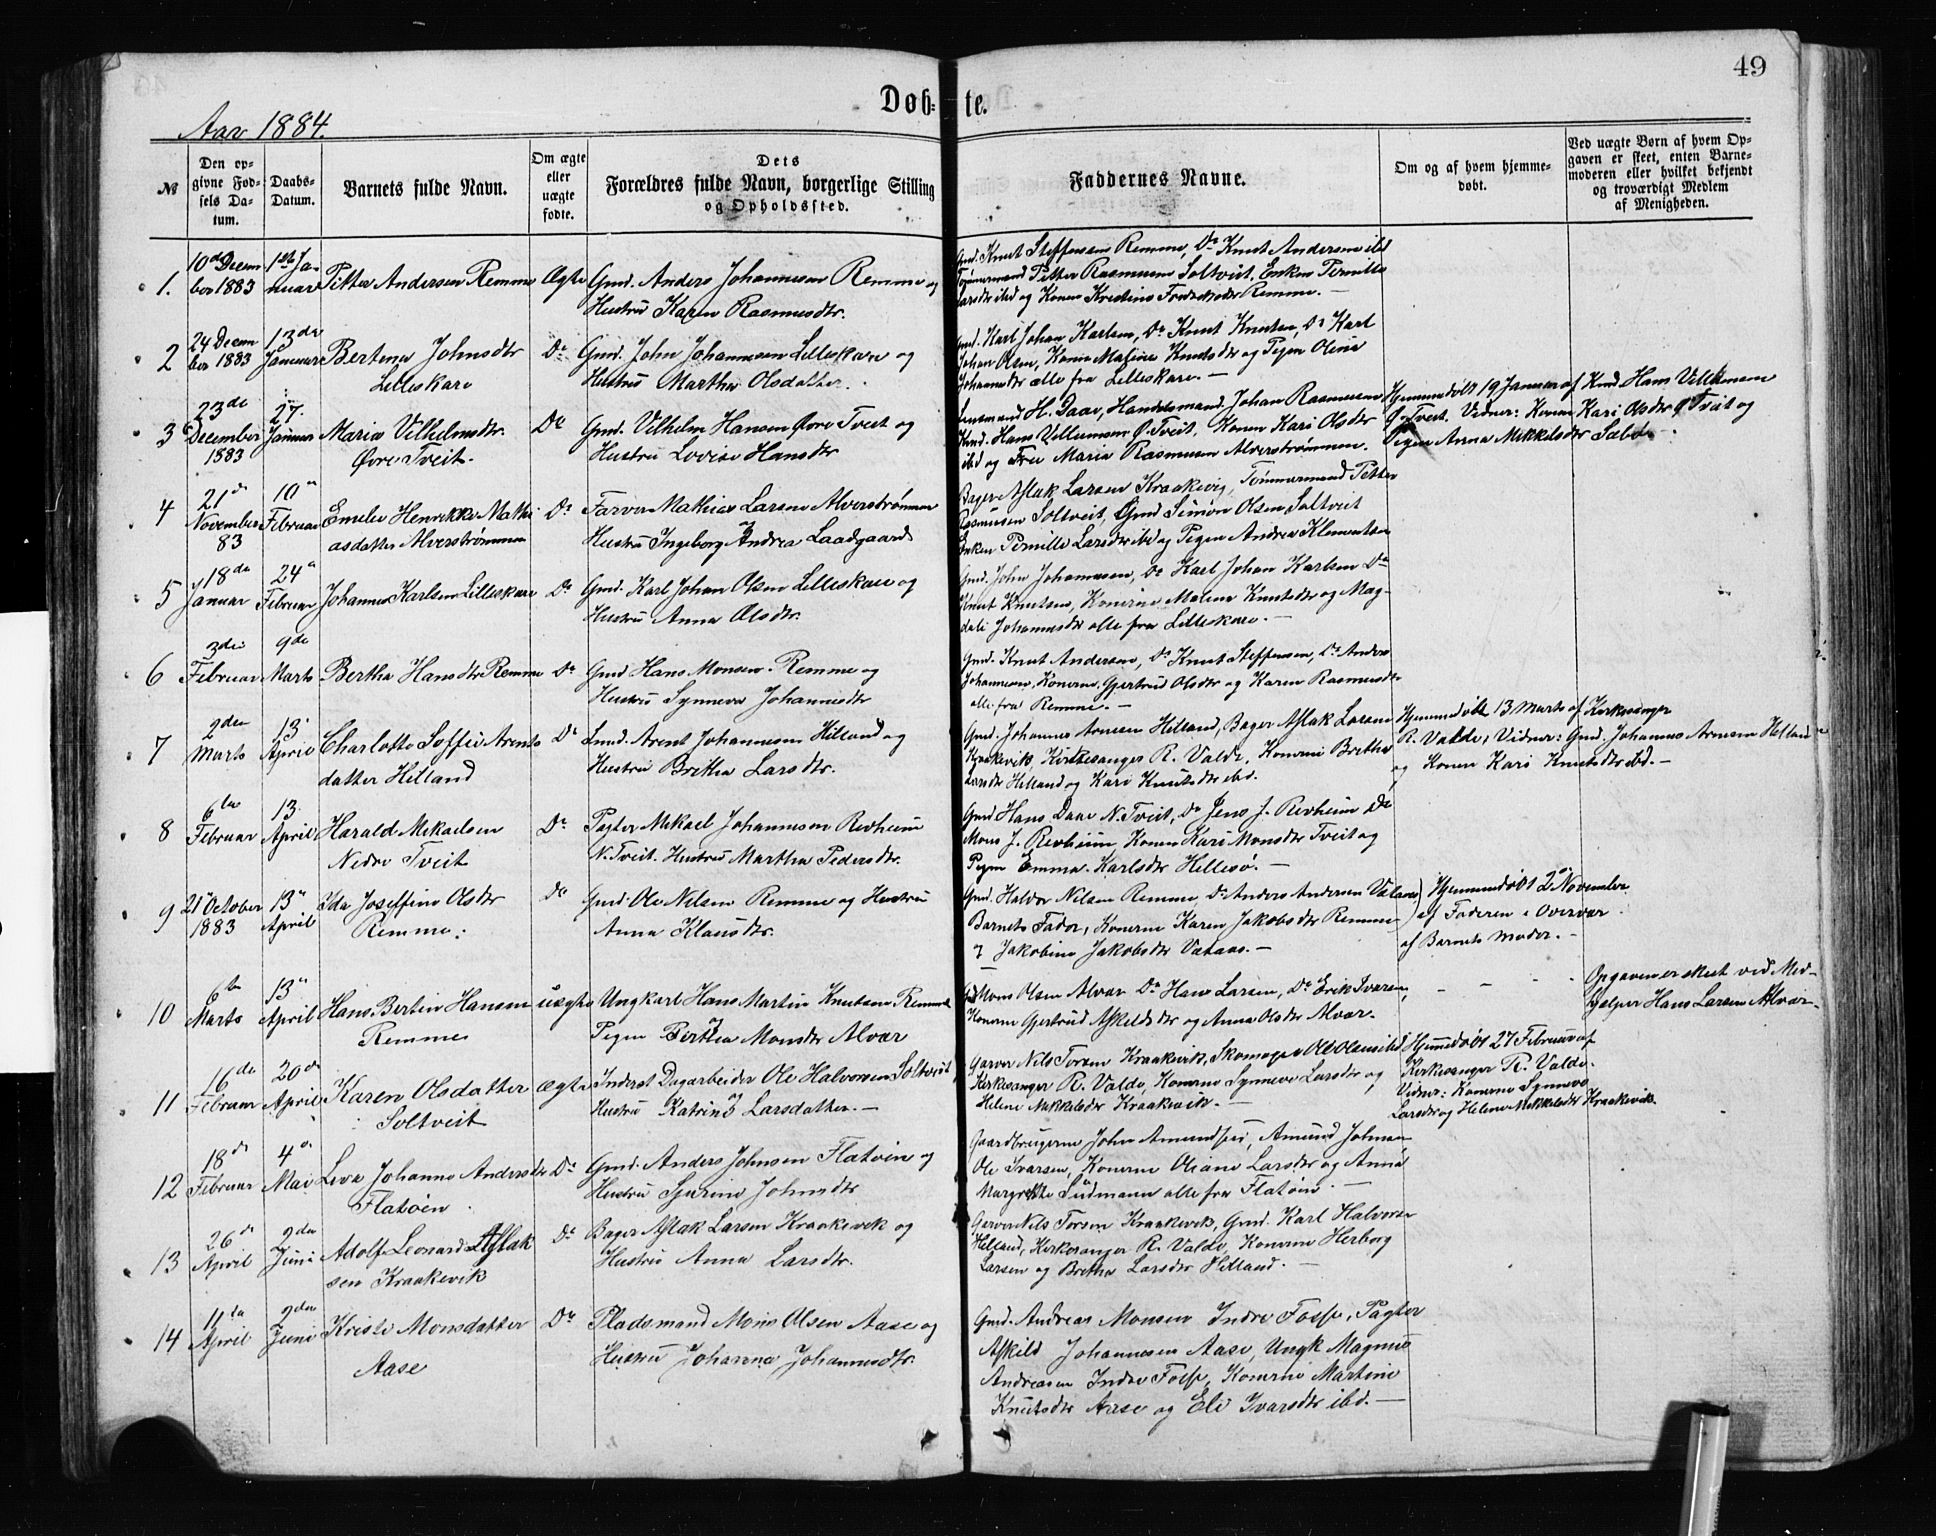 49
Døb- te.
Aar 1884.
№
Den op-
givne Fød-
sels Da-
tum.
Daabs-
Datum.
Barnets fulde Navn.
Om ægte
eller
uægte
fødte.
Dets
Forældres fulde Navn, borgerlige Stilling
og Opholdssted.
Faddernes Navne.
Om og af hvem hjemme-
døbt.
Ved uægte Børn af hvem Op-
gaven er skeet, enten Barne-
moderen eller hvilket bekjendt
og troværdigt Medlem
af Menigheden.
1.
10de Decem
ber 1883
1ste Ja-
nuar
Petter Andersen Remme
Ægte
Gmd. Anders Johannesen Remme og
Hustru Karen Rasmusdtr.
Gmd. Knut Steffensen Remme, Do Knut Andersen ibd
Tømmermand Petter Rasmusen Soltveit, Enken Pernille
Larsdtr ibd og Konen Kristine Remme. —
2
24 Decem
ber 1883
13de
Januar
Bertina Johnsdtr
Lilleskare
Do
Gmd. John Johannesen Lilleskare og
Hustru Martha Olsdatter.
Gmd. Karl Johan Karlsen, Do Knut Knutsen, Do Karl
Johan Olsen, Konen Malene Knutsdtr og Pigen Oline
Johannesdtr alle fra Lilleskare. —
3
23de
December
1883
27.
Januar
Maria Vilhelmsdtr.
Øvre Tveit.
Do
Gmd. Vilhelm Hansen Øvre Tveit og
Hustru Lovise Hansdtr
Lensmand H. Daae, Handelsmand Johan Rasmusen
Gmd. Hans Villumsen Ø. Tveit, Konen Kari Olsdtr
ibd og Frue Maria Rasmusen Alverstrømmen.
Hjemmedøbt 19 Januar af Gmd. Hans Villumsen
Ø Tveit. Vidner: Konen Kari Olsdtr Ø Tveit og
Pigen Anna Mikkelsdtr Sæbø.
4
21de
November
83
10de
Februar
Emelie Henrikke Mathi
asdatter Alverstrømmen
Do
Farver Mathias Larsen Alverstrømmen
Hustru Ingeborg Andrea Laadgaard
Bager Aslak Larsen Kraakevig, Tømmermand Petter
Rasmusen Soltveit, Gmd Simon Olsen Soltveit
Enken Pernille Larsdtr ibd og Pigen Andrea Klementsen
5
18de
Januar
24de
Februar
Johannes Karlsen Lilleskare
Do
Gmd. Karl Johan Olsen Lilleskare og
Hustru Anna Olsdtr.
Gmd. John Johannesen, Do Karl Johan Karlsen Do
Knut Knutsen, Konerne Malene Knutsdtr og Mag-
dali Johannesdtr alle fra Lilleskare. —
6
3die
Februar
9de
Marts
Bertha Hansdtr Remme
Do
Gmd Hans Monsen Remme og
Hustru Synneva Johannesdtr
Gmd. Knut Andersen, Do Knut Steffensen, Do Anders
Johannesen, Konerne Gjertrud Olsdtr og Karen Rasmusdtr
alle fra Remme. —
7
2den
Marts
13
April
Charlotte Soffie Arents
datter Helland
Do
Gmd. Arent Johannesen Helland og
Hustru Bretha Larsdtr.
Gmd. Johannes Arnesen Helland, Bager Aslak Larsen
Kraakevik, Kirkesanger R. Valde, Konerne Bretha
Larsdtr Helland og Kari Knutsdtr ibd.
Hjemmedøbt 13 Marts af Kirkesanger
R. Valde, Vidner: Gmd. Johannes Arnesen Helland
og Konen Kari Knutsdtr ibd. —
8
6te
Februar
13.
April
Harald Mikaelsen
Nedre Tveit
Do
Pagter Mikael Johannesen Revheim
N. Tveit. Hustru Martha Pedersdtr.
Gmd Hans Daae N. Tveit, Do Jens J. Revheim Do
Mons J. Revheim, Konen Kari Monsdtr Tveit og
Pigen Emma Karlsdtr Hillesø. —
9
21 October
1883
13de
April
Ida Joseffine Olsdtr
Remme.
Do
Gmd. Ole Nilsen Remme og Hustru
Anna Klausdtr.
Gmd. Halvor Nilsen Remme, Do Anders Andersen Vataas
Barnets Fader, Konerne Karen Jakobsdtr Remme
& Jakobine Jakobsdtr Vataas. —
Hjemmedøbt 2 November
af Faderen i Overvær
af Barnets Moder. —
10
6te
Marts
13de
April
Hans Bertin Hansen
Remme
uægte
Ungkarl Hans Martin Knutsen Remme
Pigen Bertha Monsdtr Alvær
Gmd Mons Olsen Alvær Do Hans Larsen, Do Erik Ivarsen,
Konerne Gjertrud Askildsdtr og Anna Olsdtr Alvær.
- - -
Opgaven er skeet ved Med-
hjelper Hans Larsen Alvær.
11
16de
Februar
20de
April
Karen Olsdatter
Soltveit
ægte
Inderst Dagarbeider Ole Halvorsen Soltveit,
Hustru Katrine Larsdatter. —
Garver Nils Torsen Kraakevik, Skomager Ole Olsen ibd
Kirkesanger R. Valde, Konerne Synneve Larsdtr og
Helene Mikkelsdtr Kraakevik. —
Hjemmedøbt 27 Februar af
Kirkesanger R. Valde.
Vidner: Konerne Synneve
Larsdtr og Helene Mikkelsdtr Kraakevik.
12
18de
Februar
4de
Mai
Lena Johanne Andersdtr
Flatøen
Do
Gmd. Anders Johnsen Flatøen og
Hustru Sjurine Johnsdtr
Gaardbrugerne John Amundsen, Amund Johnsen
Ole Ivarsen, Konerne Oliane Larsdtr og Anna
Margrethe Südmann alle fra Flatøen. —
13
26de
April
2den
Juni
Adolf Leonard Aslak
sen Kraakevik
Do
Bager Aslak Larsen Kraakevik og
Hustru Anna Larsdtr.
Garver Nils Torsen Kraakevik, Gmd. Karl Halvorsen
Helland, Kirkesanger R. Valde, Konerne Herborg
Larsen og Bretha Larsdtr Helland. —
14
11te
April
2den
Juni
Kristi Monsdatter
Aase
Do
Pladsmand Mons Olsen Aase og
Hustru Johanna Johannesdtr.
Gmd. Andreas Monsen Indre Fosse, Pagter
Askild Johannesen Aase, Ungk Magnus
Andreasen Indre Fosse, Konerne Martine
Knutsdtr Aase og Eli Ivarsdtr ibd. —